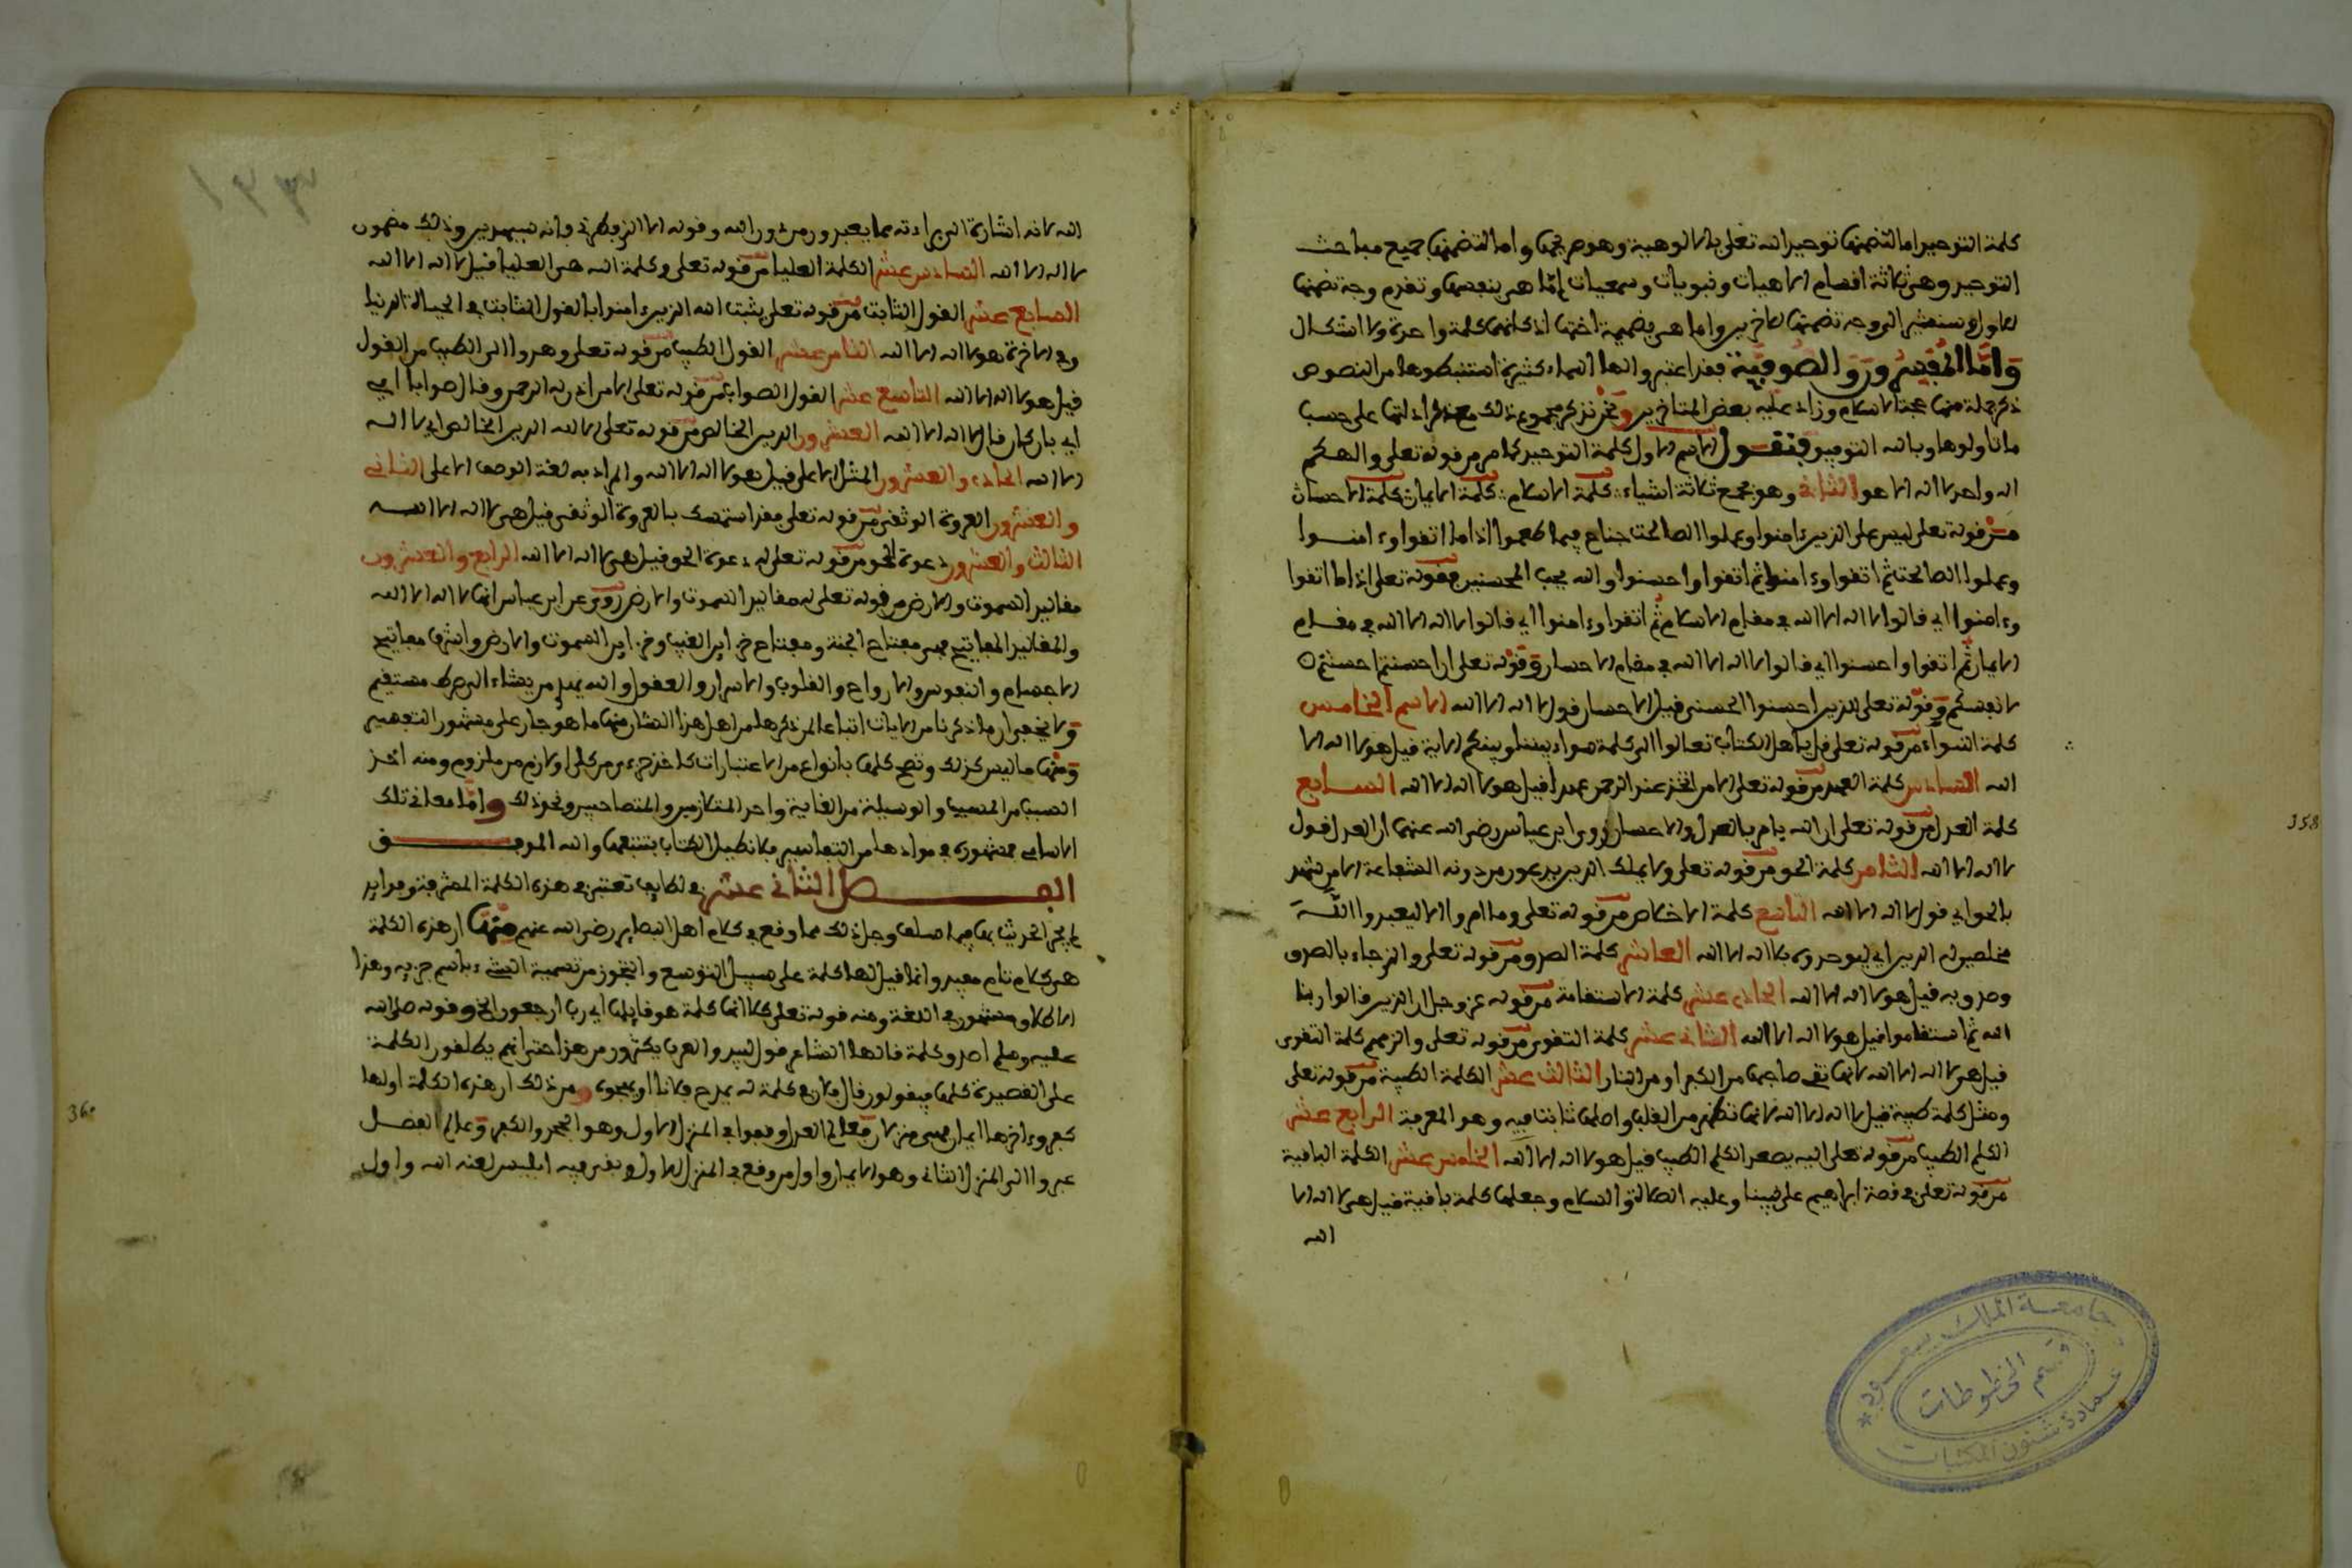 كلمة التوحيد اما لتضمنها توحيد الله تعلى بالالوهية وهو صريحها واما لتضمنها جميع مباحث
التوحيد وهي ثلاثة اقسام الاهيات ونبويات وسمعيات اما هي بنفسها وتقدم وجه تضمنها
للاول وسنشير الى وجه تضمنها للاخرين واما هي بضميمة اختها اذ كانهما كلمة واحدة ولا اشكال
واما المفسرون والصوفية فقد اعتبروا لها اسماء كثيرة استنبطوها من النصوص
ذكر جملة منها حجة الاسلام وزاد عليه بعض المتاخرين ونحن نذكر مجموع ذلك مع ذكر ادلتها على حسب
ما تاولوها وبالله التوفيق فنقول الاسم الاول كلمة التوحيد كما مر من قوله تعلى والهكم
اله واحد لا اله الا هو الثاني وهو مجمع ثلاثة اشياء كلمة الاسلام كلمة الايمان كلمة الاحسان
من قوله تعلى ليس على الذين ءامنوا وعملوا الصالحت جناح فيما طعموا اذا ما اتقوا وءامنوا
وعملوا الصالحت ثم اتقوا وءامنوا ثم اتقوا واحسنوا والله يحب المحسنين فقوله تعلى اذا ما اتقوا
وءامنوا اي قالوا لا اله الا الله في مقام الاسلام ثم اتقوا وءامنوا اي قالوا لا اله الا الله في مقام
الايمان ثم اتقوا واحسنوا اي قالوا لا اله الا الله في مقام الاحسان وقوله تعلى ان احسنتم احسنتم
لانفسكم وقوله تعلى للذين احسنوا الحسنى قيل الاحسان قول لا اله الا الله الاسم الخامس
كلمة السواء من قوله تعلى قل ياهل الكتاب تعالوا الى كلمة سواء بيننا وبينكم الاية قيل هو لا اله الا
الله السادس كلمة العهد من قوله تعلى الا من اتخذ عند الرحمن عهدا قيل هو لا اله الا الله السابع
كلمة العدل من قوله تعلى ان الله يامر بالعدل والاحسان روى ابن عباس رضي الله عنهما ان العدل قول
لا اله الا الله الثامن كلمة الحق من قوله تعلى ولا يملك الذين يدعون من دونه الشفاعة الا من شهد
بالحق اي قول لا اله الا الله التاسع كلمة الاخلاص من قوله تعلى وما امروا الا ليعبدوا الله
مخلصين له الدين اي ليوحدوه بلا اله الا الله العاشر كلمة الصدق من قوله تعلى والذي جاء بالصدق
وصدق به قيل هو لا اله الا الله الحادي عشر كلمة الاستقامة من قوله عز وجل ان الذين قالوا ربنا
الله ثم استقاموا قيل هو لا اله الا الله الثاني عشر كلمة التقوى من قوله تعلى والزمهم كلمة التقوى
قيل هي لا اله الا الله لانها تقي صاحبها من الكفر او من النار الثالث عشر الكلمة الطيبة من قوله تعلى
ومثل كلمة طيبة قيل لا اله الا الله لانها تظهر من القلب واصلها ثابت فيه وهو المعرفة الرابع عشر
الكلم الطيب من قوله تعلى اليه يصعد الكلم الطيب قيل هو لا اله الا الله الخامس عشر الكلمة الباقية
من قوله تعلى في قصة ابراهيم على نبينا وعليه الصلاة والسلام وجعلها كلمة باقية قيل هي لا اله الا
الله
358
جامعة الملك سعود
قسم المخطوطات
عمادة شئون المكتبات
الله لانه اشارة الى براءته مما يعبدون من دون الله وقوله الا الذي فطرني فانه سيهدين وذلك مضمون
لا اله الا الله السادس عشر الكلمة العليا من قوله تعلى وكلمة الله هي العليا قيل لا اله الا الله
السابع عشر القول الثابت من قوله تعلى يثبت الله الذين ءامنوا بالقول الثابت في الحياة الدنيا
وفي الاخرة هو لا اله الا الله الثامن عشر القول الطيب من قوله تعلى وهدوا الى الطيب من القول
قيل هو لا اله الا الله التاسع عشر القول الصواب من قوله تعلى الا من اذن له الرحمن وقال صوابا اي
اي بان كان قال لا اله الا الله العشرون الدين الخالص من قوله تعلى الا لله الدين الخالص اي لا اله
الا الله الحادي والعشرون المثل الاعلى قيل هو لا اله الا الله والمراد به لغة الوصف الاعلى الثاني
والعشرون العروة الوثقى من قوله تعلى فقد استمسك بالعروة الوثقى قيل هي لا اله الا الله
الثالث والعشرون دعوة الحق من قوله تعلى له دعوة الحق قيل هي لا اله الا الله الرابع والعشرون
مقاليد السموت والارض من قوله تعلى له مقاليد السموت والارض روي عن ابن عباس انها لا اله الا الله
والمقاليد المفاتيح فهي مفتاح الجنة ومفتاح خزاين الغيب وخزاين السموت والارض واشرف مفاتيح
الاجسام والنفوس والارواح والقلوب والاسرار والعقول والله يهدي من يشاء الى صرط مستقيم
ولا يخفى ان ما ذكرنا من الايات اتباعا لمن ذكرها من اهل هذا الشان منها ما هو جار على مشهور التفسير
ومنها ما ليس كذلك وتصح كلها بانواع من الاعتبارات كاخذ جزء من كل او لازم من ملزوم ومنه اخذ
السبب من المسبب والوسيلة من الغاية واحد المتلازمين والمتصاحبين ونحو ذلك واما معاني تلك
الاسامي فمشهورة في موادها من التفاسير فلا نطيل الكتاب بتتبعها والله الموفق
الفصل الثاني عشر في لطايف تعتبر في هذه الكلمة المشرفة وفرايد
لم يجر الحديث بها فيما سلف وجل ذلك مما وقع في كلام اهل البصاير رضي الله عنهم منها ان هذه الكلمة
هي كلام تام مفيد وانما قيل لها كلمة على سبيل التوسع والتجوز من تسمية الشيء باسم جزيه وهذا
الاطلاق مشهور في اللغة ومنه قوله تعلى كلا انها كلمة هو قايلها اي رب ارجعون الخ وقوله صلى الله
عليه وسلم اصدق كلمة قالها الشاعر قول لبيد والعرب يكثرون من هذا حتى انهم يطلقون الكلمة
على القصيدة كلها فيقولون قال فلان في كلمة له يمدح فلانا او يهجوه ومن ذلك ان هذه الكلمة اولها
كفر وءاخرها ايمان
عبروا الى المنزل الثاني وهو الايمان واول من وقع في المنزل الاول وبقي فيه ابليس لعنه الله واول
360